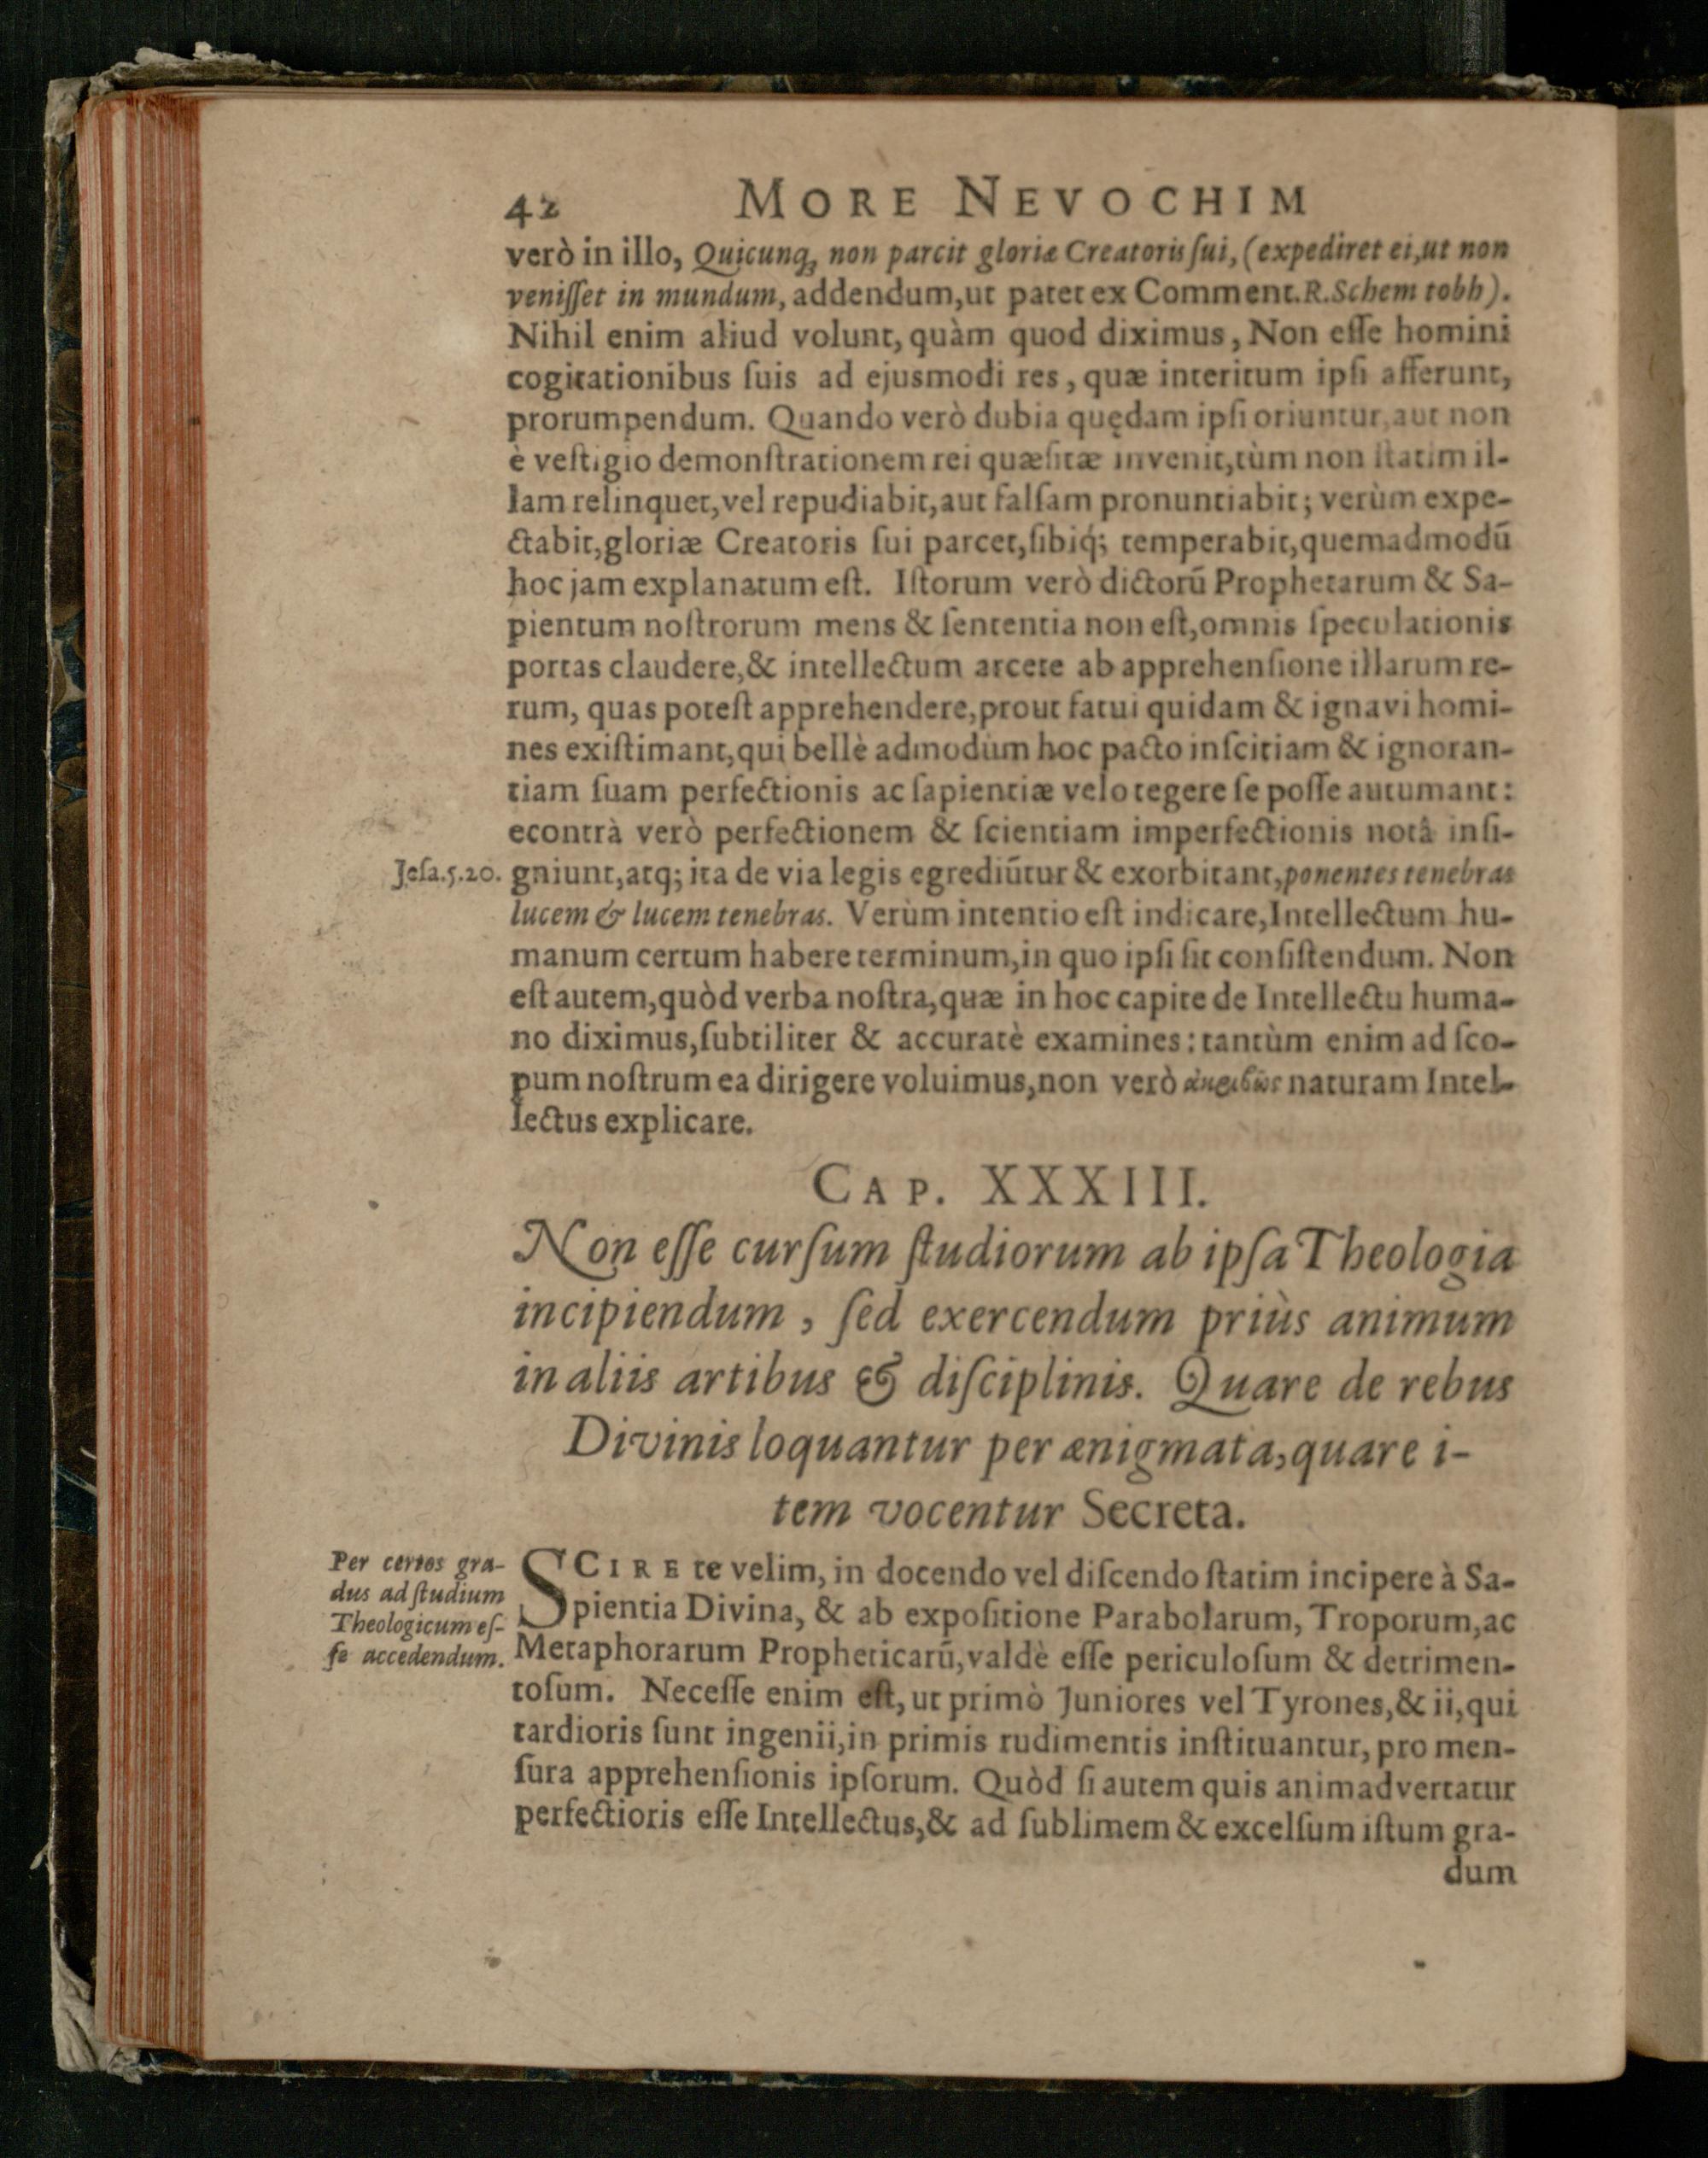 42 MORE NEVOCHIM
verò in illo, Quicunq; non parcit gloriæ Creatoris ſui, (expediret ei,ut non
veniſſet in mundum, addendum,ut patet ex Comment.R.Schem tobh).
Nihil enim aliud volunt, quàm quod diximus, Non eſſe homini
cogitationibus ſuis ad ejusmodi res, quæ interitum ipſi afferunt,
prorumpendum. Quando verò dubia quędam ipſi oriuntur,aut non
è veſtigio demonſtrationem rei quæſitæ invenit,tùm non ſtatim il-
lam relinquet,vel repudiabit,aut falſam pronuntiabit; verùm expe-
ctabit,gloriæ Creatoris ſui parcet,ſibiq́; temperabit,quemadmodū
hoc jam explanatum eſt. Iſtorum verò dictorū Prophetarum & Sa-
pientum noſtrorum mens & ſententia non eſt,omnis ſpeculationis
portas claudere,& intellectum arcere ab apprehenſione illarum re-
rum, quas poteſt apprehendere,prout fatui quidam & ignavi homi-
nes exiſtimant,qui bellè admodùm hoc pacto inſcitiam & ignoran-
tiam ſuam perfectionis ac ſapientiæ velo tegere ſe poſſe autumant:
econtrà verò perfectionem & ſcientiam imperfectionis notâ inſi-
Jeſa.5.20. gniunt,atq; ita de via legis egrediūtur & exorbitant,ponentes tenebras
lucem & lucem tenebras. Verùm intentio eſt indicare,Intellectum hu-
manum certum habere terminum,in quo ipſi ſit conſiſtendum. Non
eſt autem,quòd verba noſtra,quæ in hoc capite de Intellectu huma-
no diximus,ſubtiliter & accuratè examines: tantùm enim ad ſco-
pum noſtrum ea dirigere voluimus,non verò ἀκριβῶς naturam Intel-
lectus explicare.
CAP. XXXIII.
Non eſſe curſum ſtudiorum ab ipſa Theologia
incipiendum, ſed exercendum priùs animum
in aliis artibus & diſciplinis. Quare de rebus
Divinis loquantur per ænigmata,quare i-
tem vocentur Secreta.
Per certos gra-
dus ad ſtudium
Theologicum eſ-
ſe accedendum.
SCIRE te velim, in docendo vel diſcendo ſtatim incipere à Sa-
pientia Divina, & ab expoſitione Parabolarum, Troporum,ac
Metaphorarum Propheticarū,valdè eſſe periculoſum & detrimen-
toſum. Neceſſe enim eſt, ut primò Juniores vel Tyrones,& ii,qui
tardioris ſunt ingenii,in primis rudimentis inſtituantur, pro men-
ſura apprehenſionis ipſorum. Quòd ſi autem quis animadvertatur
perfectioris eſſe Intellectus,& ad ſublimem & excelſum iſtum gra-
dum